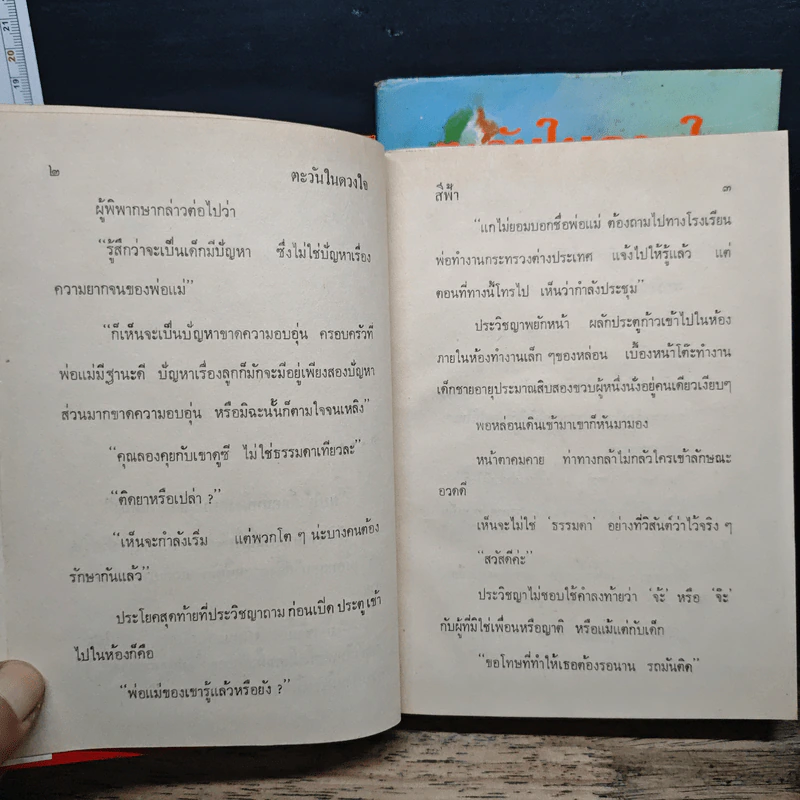 ๒ ตะวันในดวงใจ
ผู้พิพากษากล่าวต่อไปว่า
“รู้สึกว่าจะเป็นเด็กมีปัญหา ซึ่งไม่ใช่ปัญหาเรื่อง
ความยากจนของพ่อแม่”
“ก็เห็นจะเป็นปัญหาขาดความอบอุ่น ครอบครัวที่
พ่อแม่มีฐานะดี ปัญหาเรื่องลูกก็มักจะมีอยู่เพียงสองปัญหา
ส่วนมากขาดความอบอุ่น หรือมิฉะนั้นก็ตามใจจนเหลิง”
“คุณลองคุยกับเขาดูซี ไม่ใช่ธรรมดาเทียวละ”
“ติดยาหรือเปล่า ?”
“เห็นจะกำลังเริ่ม แต่พวกโต ๆ น่ะบางคนต้อง
รักษากันแล้ว”
ประโยคสุดท้ายที่ประวิชญาถาม ก่อนเปิด ประตู เข้า
ไปในห้องก็คือ
“พ่อแม่ของเขารู้แล้วหรือยัง ?”
สีฟ้า ๓
“แกไม่ยอมบอกชื่อพ่อแม่ ต้องถามไปทางโรงเรียน
พ่อทำงานกระทรวงต่างประเทศ แจ้งไปให้รู้แล้ว แต่
ตอนที่ทางนี้โทรไป เห็นว่ากำลังประชุม”
ประวิชญาพยักหน้า ผลักประตูก้าวเข้าไปในห้อง
ภายในห้องทำงานเล็ก ๆของหล่อน เบื้องหน้าโต๊ะทำงาน
เด็กชายอายุประมาณสิบสองขวบผู้หนึ่งนั่งอยู่คนเดียวเงียบๆ
พอหล่อนเดินเข้ามาเขาก็หันมามอง
หน้าตาคมคาย ท่าทางกล้าไม่กลัวใครเข้าลักษณะ
อวดดี
เห็นจะไม่ใช่ ‘ธรรมดา’ อย่างที่วิสันต์ว่าไว้จริง ๆ
“สวัสดีค่ะ”
ประวิชญาไม่ชอบใช้คำลงท้ายว่า ‘จ้ะ’ หรือ ‘จ๊ะ’
กับผู้ที่มิใช่เพื่อนหรือญาติ หรือแม้แต่กับเด็ก
“ขอโทษที่ทำให้เธอต้องรอนาน รถมันติด”